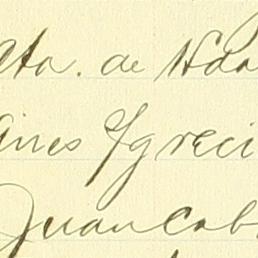 cta. de Hda
ines Ygreci
Juan Cab